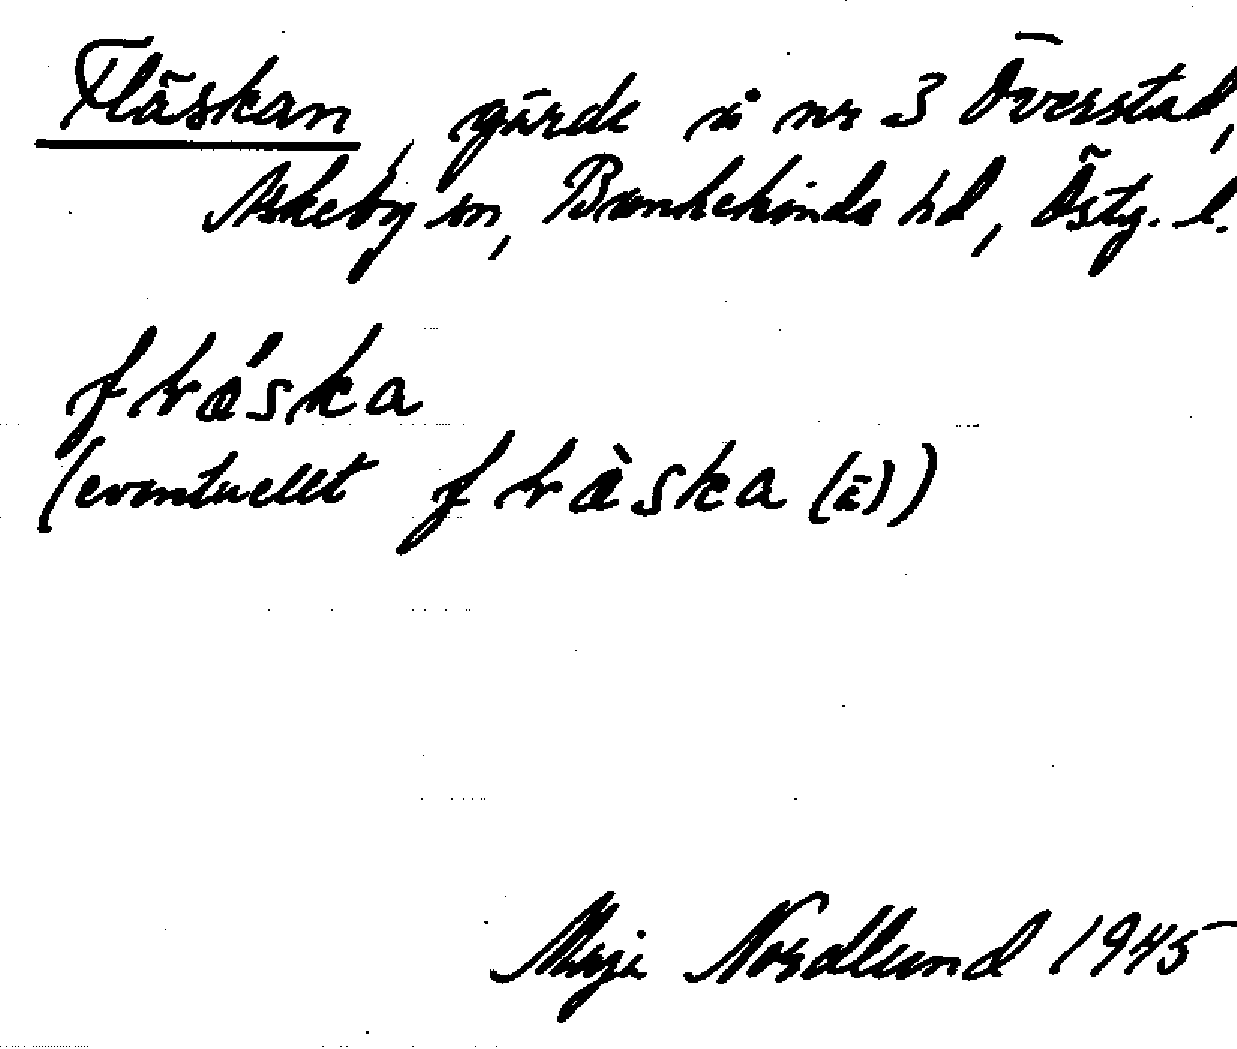 Fläskan, gärde i nr 3 Överstad,
Askeby sn, Bankekinds hd, Östg. l.
flǽska
(eventuellt flæ̀ska (ä))
Maja Nordlund 1945